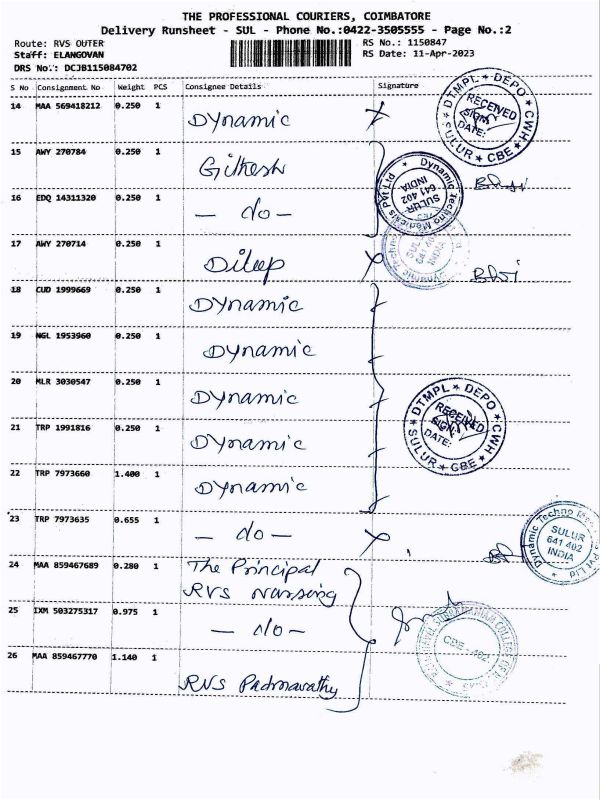 THE PROFESSIONAL COURIERS, COIMBATORE
Delivery Runsheet - SUL - Phone No.:0422-3505555 - Page No.:2
Route: RVS OUTER RS No.: 1150847
Staff: ELANGOVAN RS Date: 11-Apr-2023
DRS No.: DCJB115084702
S No Consignment No Weight PCS Consignee Details Signature
14 MAA 569418212 0.250 1 Dynamic
DTMPL ★ DEPO ★ CWH ★ SULUR ★ CBE ★
RECEIVED
SIGN:
DATE:
15 AWY 270784 0.250 1
Dynamic Techno Medicals Pvt Ltd
SULUR
641 402
INDIA
16 EDQ 14311320 0.250 1 - do -
17 AWY 270714 0.250 1 Dileep
Dynamic Techno
SULUR
641 402
INDIA
18 CUD 1999669 0.250 1 Dynamic
19 NGL 1953960 0.250 1 Dynamic
20 MLR 3030547 0.250 1 Dynamic
DTMPL ★ DEPO ★ CWH ★ SULUR ★ CBE ★
RECEIVED
SIGN:
DATE:
21 TRP 1991816 0.250 1 Dynamic
22 TRP 7973660 1.400 1 Dynamic
23 TRP 7973635 0.655 1 - do -
Dynamic Techno Pvt Ltd
SULUR
641 402
INDIA
24 MAA 859467689 0.280 1 The Principal
RVS Nursing
25 IXM 503275317 0.975 1 - do -
CBE - 402
26 MAA 859467770 1.140 1 RVS Padmavathy